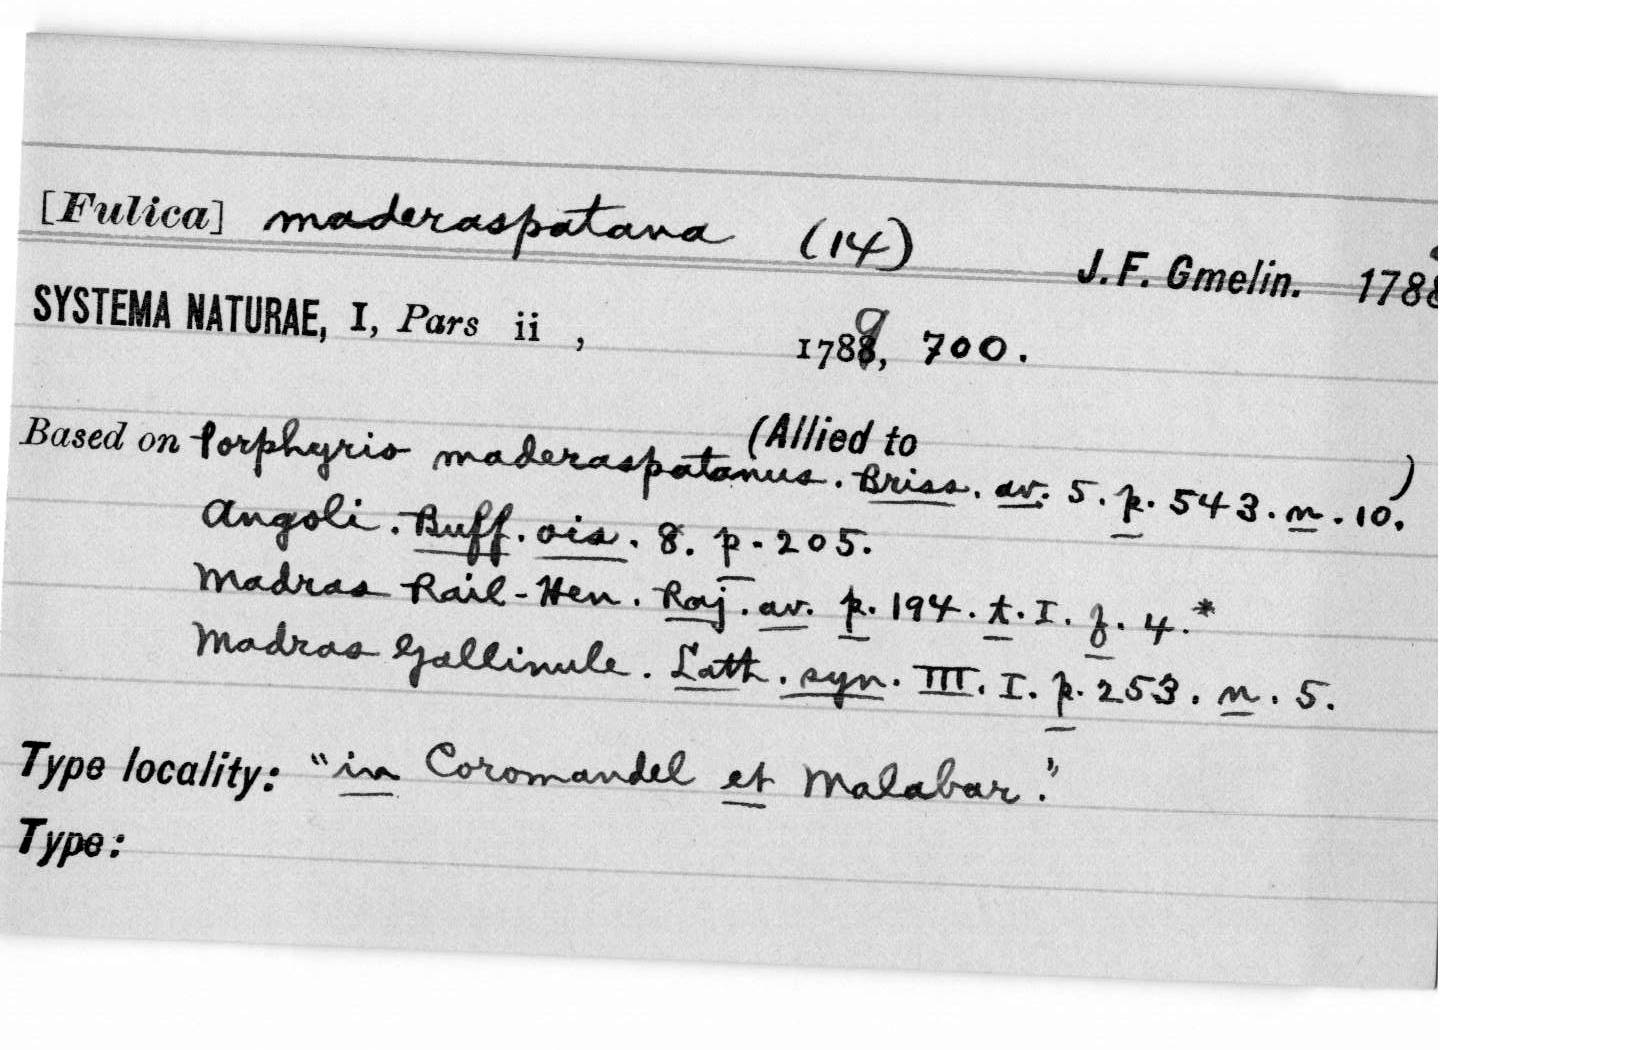 [Fulica] maderaspatana (14) J. F. Gmelin. 1788
SYSTEMA NATURAE, I, Pars ii , 1789, 700.
(Allied to )
Based on Porphyrio maderaspatanus. Briss. av. 5. p. 543. n. 10.
Angoli. Buff. ois. 8. p. 205.
Madras Rail-Hen. Raj. av. p. 194. t. I. f. 4.*
Madras Gallinule. Lath. syn. III. I. p. 253. n. 5.
Type locality: "in Coromandel et Malabar."
Type: